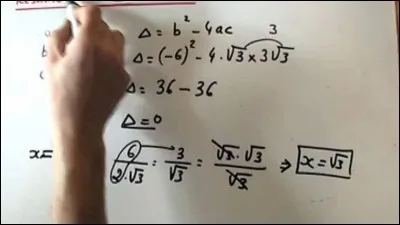 Δ = b² - 4ac 3
Δ = (-6)² - 4·√3 × 3√3
Δ = 36 - 36
Δ = 0
x = 6/(2·√3) = 3/√3 = (√3·√3)/√3 ⇒ x = √3